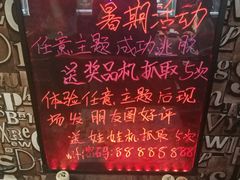 暑期活动
任意主题成功逃脱
送奖品机抓取5次
体验任意主题后现
场发朋友圈好评
送娃娃机抓取5次